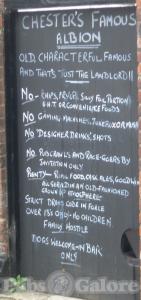 CHESTER'S FAMOUS
ALBION
OLD, CHARACTERFUL, FAMOUS
AND THATS JUST THE LANDLORD!!
NO - CHIPS, FRYERS, SILLY FUL PORTION)
OR CONVENIENCE FOODS
NO GAMING MACHINES, JUKEBOX OR MUSIC
NO 'DESIGNER DRINKS', SHOTS
NO PUBCRAWLS AND RACE-GOERS BY
INVITATION ONLY
PLENTY - REAL FOOD, CASK ALES, GOOD WINE
ALL SERVED IN AN OLD-FASHIONED
STRICT DRESS CODE IN FORCE
OVER 18S ONLY - NO CHILDREN
FAMILY HOSTILE
DOGS WELCOME IN BAR
ONLY
Pubs Galore